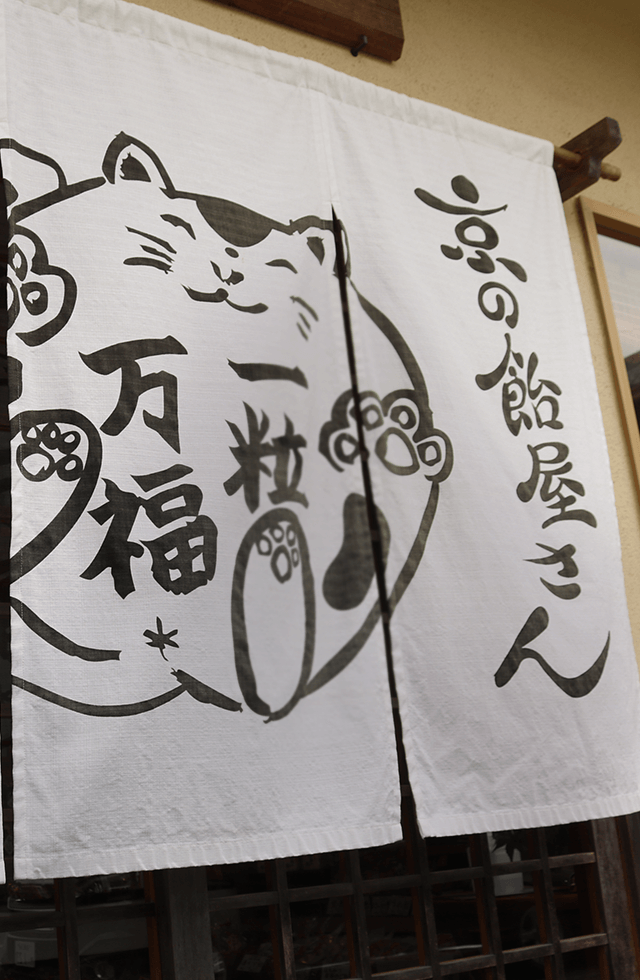 京の飴屋さん
一粒
万福